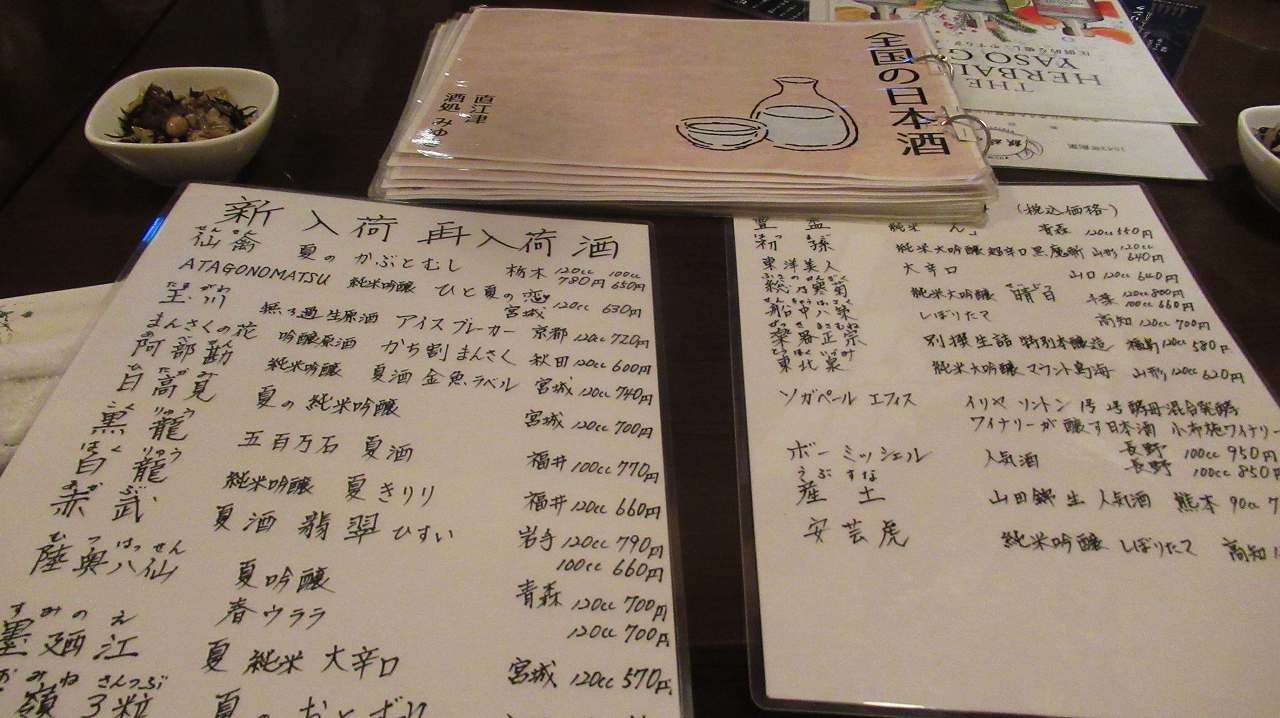 全国の日本酒
直江津
酒処 みゆ
THE
HERBAL
YASO G
新入荷 再入荷 酒
せんきん
仙禽 夏の かぶとむし 栃木 120cc 780円 100cc 650円
ATAGONOMATSU 純米吟醸 ひと夏の恋 宮城 120cc 630円
たまがわ
玉川 無ろ過生原酒 アイスブレーカー 京都 120cc 720円
まんさくの花 吟醸原酒 かち割まんさく 秋田 120cc 600円
あべかん
阿部勘 純米吟醸 夏酒 金魚ラベル 宮城 120cc 740円
ひたかみ
日高見 夏の 純米吟醸 宮城 120cc 700円
こくりゅう
黒龍 五百万石 夏酒 福井 100cc 770円
はくりゅう
白龍 純米吟醸 夏きりり 福井 120cc 660円
あかぶ
赤武 夏酒 翡翠 ひすい 岩手 120cc 790円
100cc 660円
むつはっせん
陸奥八仙 夏吟醸 青森 120cc 700円
春ウララ 120cc 700円
すみのえ
墨廼江 夏 純米 大辛口 宮城 120cc 570円
おみねさんつぶ
嶺3粒 夏の おとずれ
(税込価格)
豊盃 純米 青森 120cc
初孫 純米大吟醸 超辛口 山形 120cc 640円
東洋美人 大辛口 山口 120cc 640円
総乃寒菊 純米大吟醸 晴日 千葉 120cc 800円
100cc 660円
船中八策 しぼりたて 高知 120cc 700円
栄四郎正宗 別撰生詰 特別本醸造 福島 120cc 580円
東北泉 純米大吟醸 マウント鳥海 山形 120cc 620円
ソガペール エフィス イリヤ ソントン 1号 2号酵母混合発酵
ワイナリーが醸す日本酒 小布施ワイナリー
長野 100cc 950円
ボー ミッシェル 人気酒 長野 100cc 850円
うぶすな
産土 山田錦 生 人気酒 熊本 90cc
安芸虎 純米吟醸 しぼりたて 高知